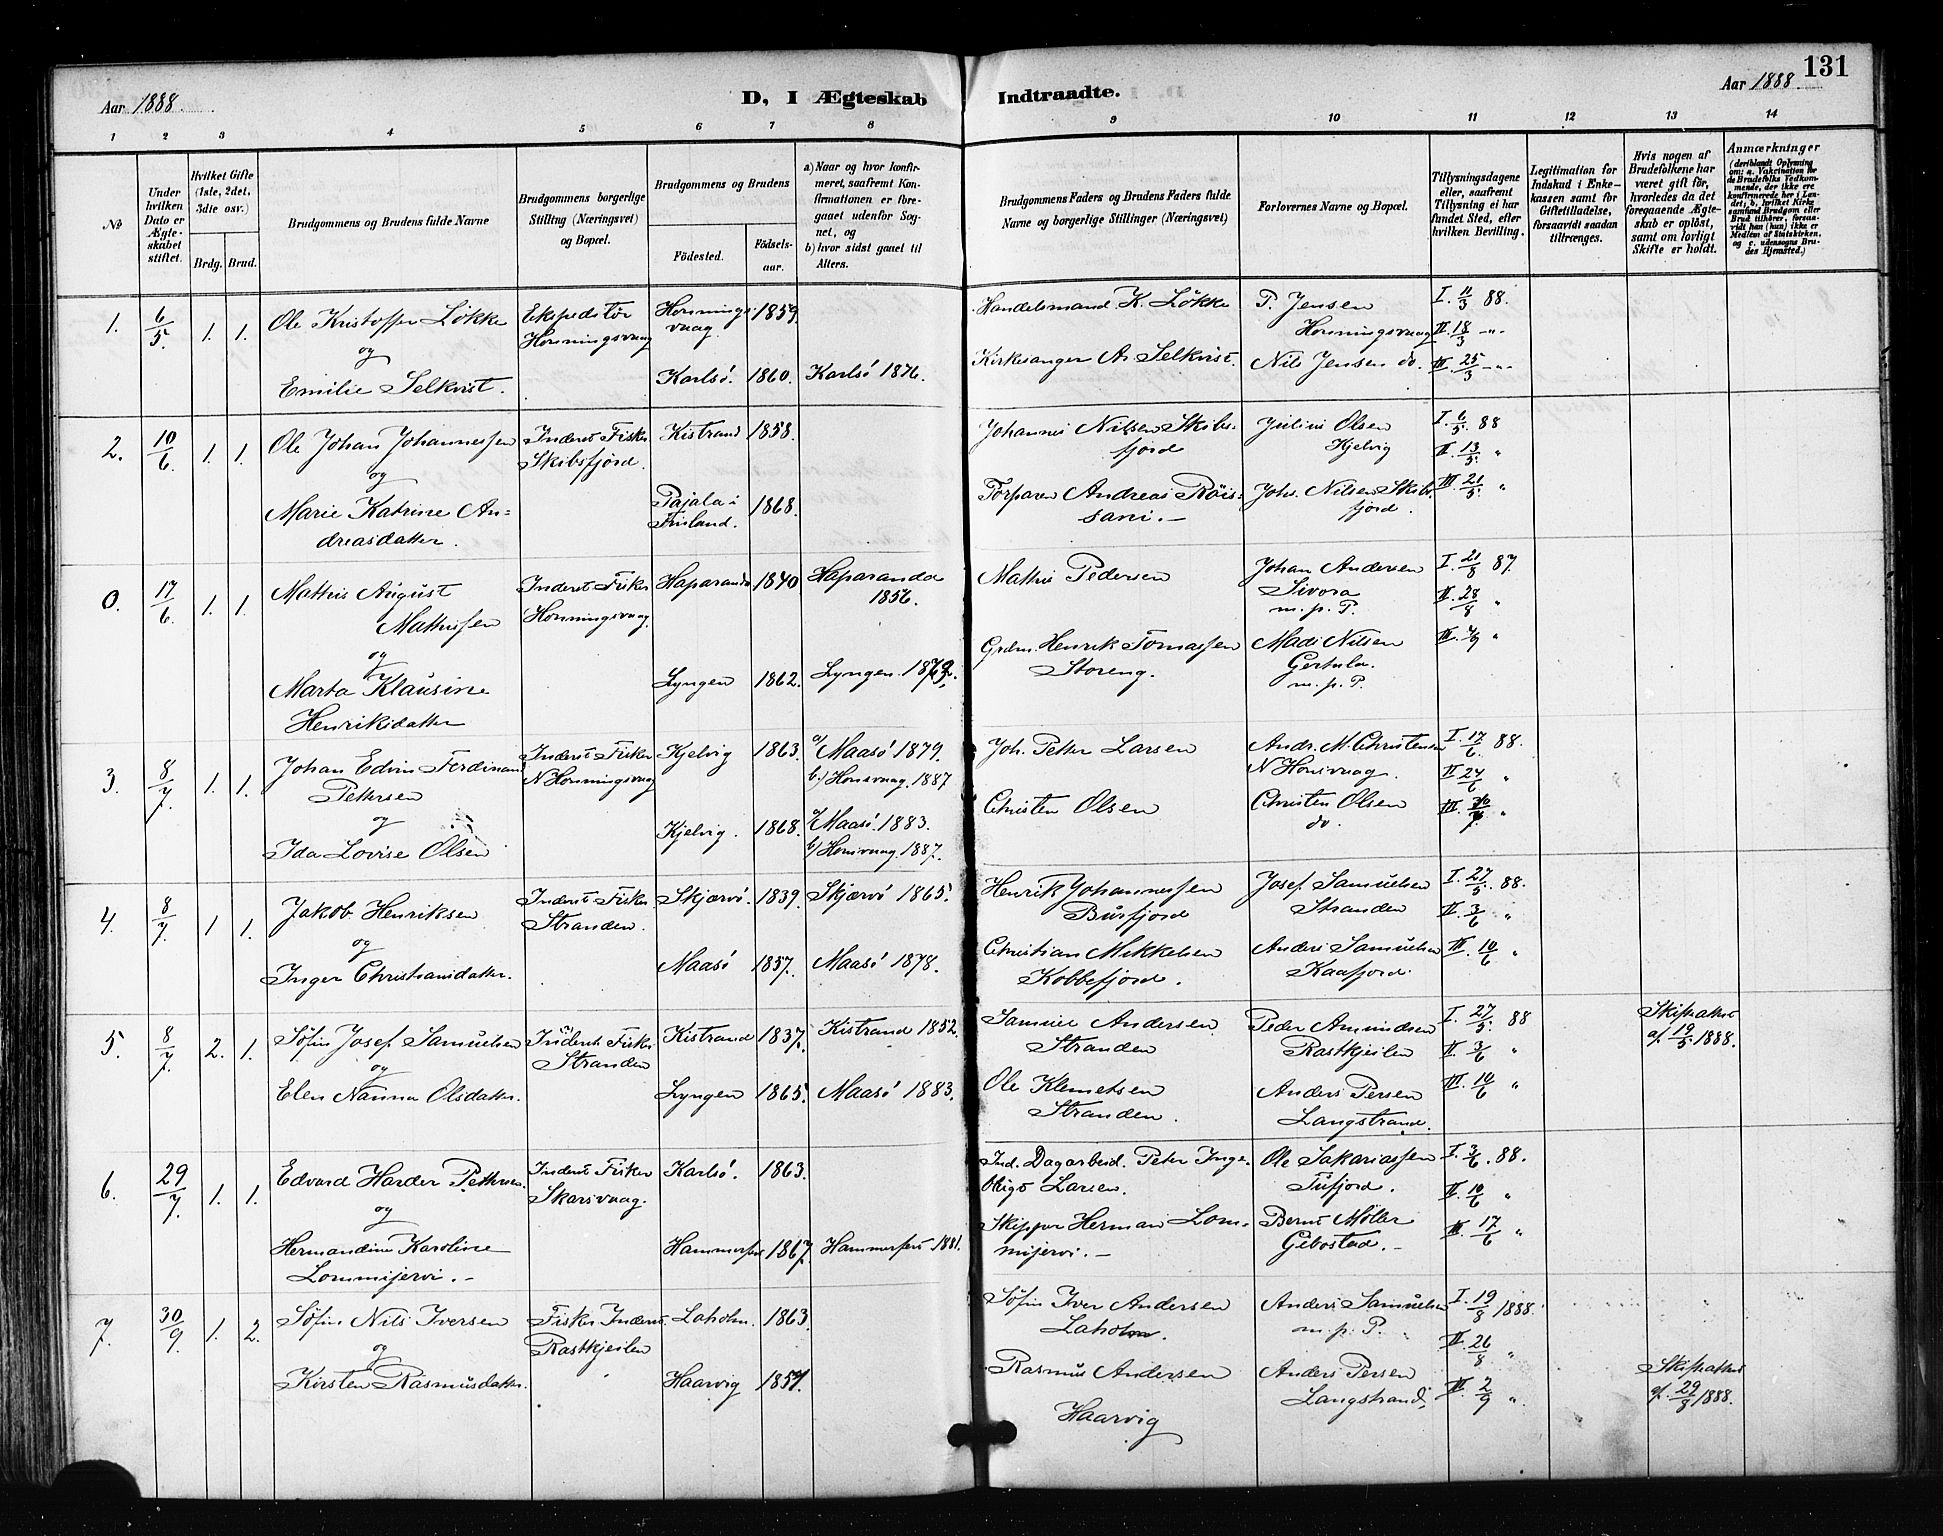 131
Aar 1888.
D, I Ægteskab Indtraadte.
Aar 1888
1 2 3 4 5 6 7 8 9 10 11 12 13 14
No
Under hvilken Dato er Ægteskabet stiftet.
Hvilket Gifte (1ste, 2det, 3die osv.)
Brdg. Brud.
Brudgommens og Brudens fulde Navne
Brudgommens borgerlige Stilling (Næringsvei) og Bopæl.
Brudgommens og Brudens
Fødested.
Fødselsaar.
a) Naar og hvor konfirmeret, saafremt Konfirmationen er foregaaet udenfor Sognet, og
b) hvor sidst gaaet til Alters.
Brudgommens Faders og Brudens Faders fulde Navne og borgerlige Stillinger (Næringsvei)
Forlovernes Navne og Bopæl.
Tillysningsdagene eller, saafremt Tillysning ei har fundet Sted, efter hvilken Bevilling.
Legitimation for Indskud i Enkekassen samt for Giftetilladelse, forsaavidt saadan tiltrænges.
Hvis nogen af Brudefolkene har været gift før, hvorledes da det foregaaende Ægteskab er opløst, samt om lovligt Skifte er holdt.
Anmærkninger
(deriblandt Oplysning om: a. Vakcination for de Brudefolks Vedkommende, der ikke ere konfirmerede her i Landet; b. hvilket Kirkesamfund Brudgom eller Brud tilhører, forsaavidt han (hun) ikke er Medlem af Statskirken, og c. udensogns Brudes Hjemsted.)
1. 6/5. 1. 1. Ole Kristoffer Løkke
og
Emilie Selkvist.
Ekspeditør
Honningsvaag
Honningsvaag 1859.
Karlsö. 1860. Karlsö 1876.
Handelsmand K. Løkke
Kirkesanger A. Selkvist.
P. Jensen
Honningsvaag
Nils Jensen do.
I. 11/3 88.
II. 18/3 -"-
III. 25/3 -"-
2. 10/6. 1. 1. Ole Johan Johannessen
og
Marie Katrine Andreasdatter.
Inderst Fisker
Skibsfjord.
Kistrand 1858.
Pajala i
Finland. 1868.
Johannes Nilsen Skibsfjord
Torparen Andreas Röissani.-
Julius Olsen
Kjelvig
Johs. Nilsen Skibsfjord.
I. 6/5. 88
II. 13/5. "
III. 21/5. "
0. 17/6. 1. 1. Mathis August
Mathissen
og
Marta Klausine
Henriksdatter
Inderst Fisker
Honningsvaag.
Haparanda 1840 Haparanda
1856.
Lyngen 1862. Lyngen.
Mathis Pedersen
Grdm. Henrik Tomassen
Storeng.
Johan Andersen
Sivora
m. p. P.
Mads Nilsen
m. p. P.
I. 21/8 87.
II. 28/8 "
III. 4/9 "
3. 8/7. 1. 1. Johan Edvin Ferdinand
Pettersen
og
Ida Lovise Olsen
Inderst Fisker
N Honningsvaag
Kjelvig 1863. a/ Maasö 1879.
b.) Honsvaag. 1887
Kjelvig. 1868. a/ Maasö. 1883.
b/ Honsvaag. 1887.
Joh. Petter Larsen
Christen Olsen
Andr. M. Christensen
N Honsvaag.
Christen Olsen
do.
I. 17/6. 88.
II. 24/6 "
III. "
4. 8/7. 1 1. Jakob Henriksen
og
Inger Christiansdatter.
Inderst Fisker
Stranden.
Skjærvö. 1839. Skjærvö 1865.
Maasö 1857. Maasö 1878.
Henrik Johannessen
Burfjord
Christian Mikkelsen
Kobbefjord.
Josef Samuelsen
Stranden
Anders Samuelsen
Kaafjord.
I. 27/5. 88.
II. 3/6 "
III. 10/6 "
5. 8/7. 2. 1. Söfin Josef Samuelsen
og
Elen Nanna Olsdatter.
Inderst Fisker
Stranden
Kistrand 1837. Kistrand 1852.
Lyngen 1865. Maasö 1883.
Samuel Andersen
Stranden
Ole Klemetsen
Stranden.
Peder Amundsen
Rastkjeilen
Anders Persen
Langstrand.
I. 27/5. 88
II. 3/6 "
III. 10/6 "
Skifteattest
af. 19/5. 1888.
6. 29/7. 1. 1. Edvard Harder Pettersen.
og
Hermandine Karoline
Lommijervi.-
Inderst Fisker
Skarsvaag.
Karlsö. 1863.
Hammerfest 1867. Hammerfest 1881.
Ind. Dagarbeid. Peter Ingebrigt Larsen.
Skipper Herman Lommijervi.-
Ole Sakariassen
Tufjord.
Bernt Møller
Gibostad.-
I. 3/6. 88.
II. 10/6 "
III. 17/6 "
7. 30/9. 1. 2. Söfin Nils Iversen
og
Kirsten Rasmusdatter.
Fisker Inderst.
Rastkjeilen
Laholm. 1863.
Haarvig 1857.
Söfin Iver Andersen
Laholm.
Rasmus Andersen
Haarvig
Anders Samuelsen
m. p. P.
Anders Persen
Langstrand.
I. 19/8 1888.
II. 26/8 "
III. 2/9 "
Skifteattest
af. 29/8 1888.